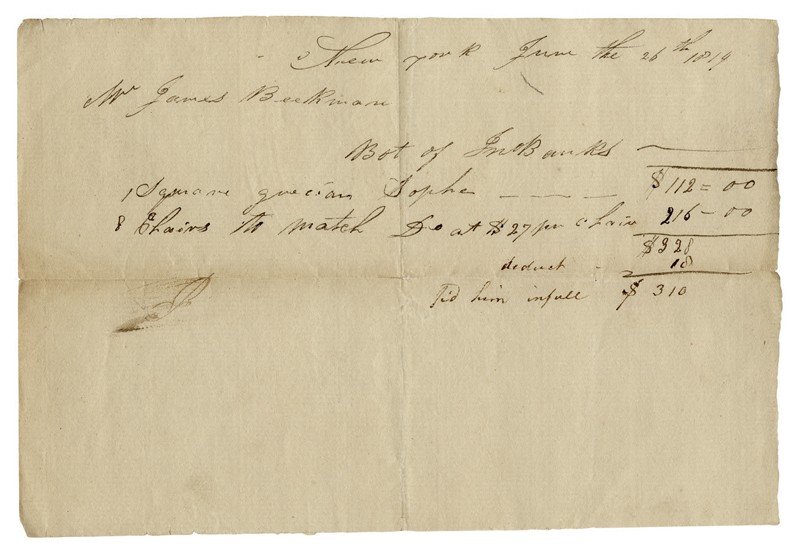 New york June the 26th 1819
Mr James Beekman
Bot of Jno Banks
1 Square grecian Sopha $112=00
8 Chairs to match Do at $27 per Chair 216-00
$328
deduct - 18
P'd him in full $ 310